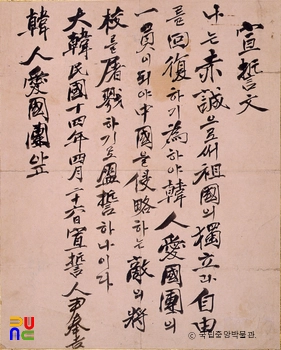 宣誓文
나는 赤誠으로써 祖國의 獨立과 自由
를 回復하기 爲하야 韓人愛國團의
一員이 되야 中國을 侵略하는 敵의 將
校를 屠戮하기로 盟誓하나이다
大韓民國十四年四月二十六日 宣誓人 尹奉吉
韓人愛國團앞
© 국립중앙박물관.